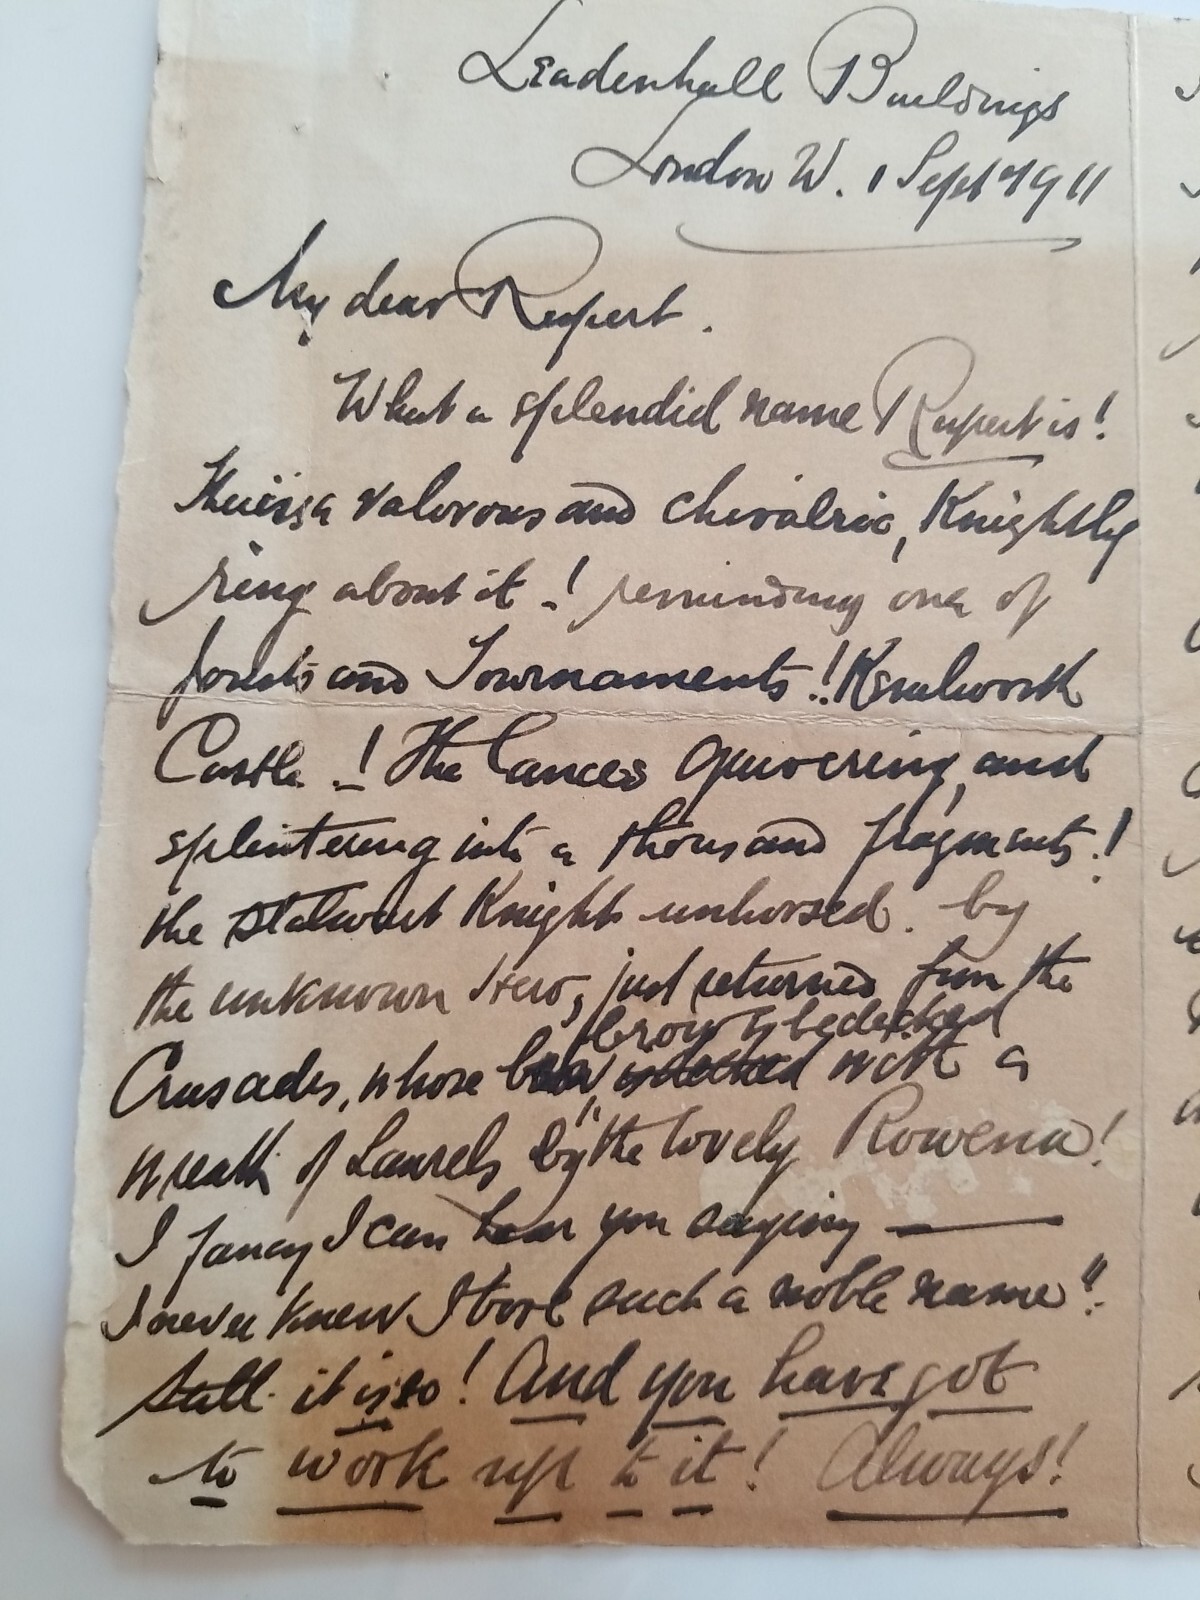 Leadenhall Buildings
London W. 1 Sept 1911
My dear Rupert.
What a splendid name Rupert is!
There is a valorous and chivalric, Knightly
ring about it! reminding one of
forests and Tournaments!! Kenilworth
Castle! The lances quivering, and
splintering into a thousand fragments!
the stalwart Knight unhorsed by
the unknown Hero, just returned from the
brow is bedecked
Crusades, whose with a
wreath of Laurels by "the lovely Rowena!
I fancy I can hear you saying —
I never knew I bore such a noble name".
Still it is so! And you have got
to work up to it! Always!